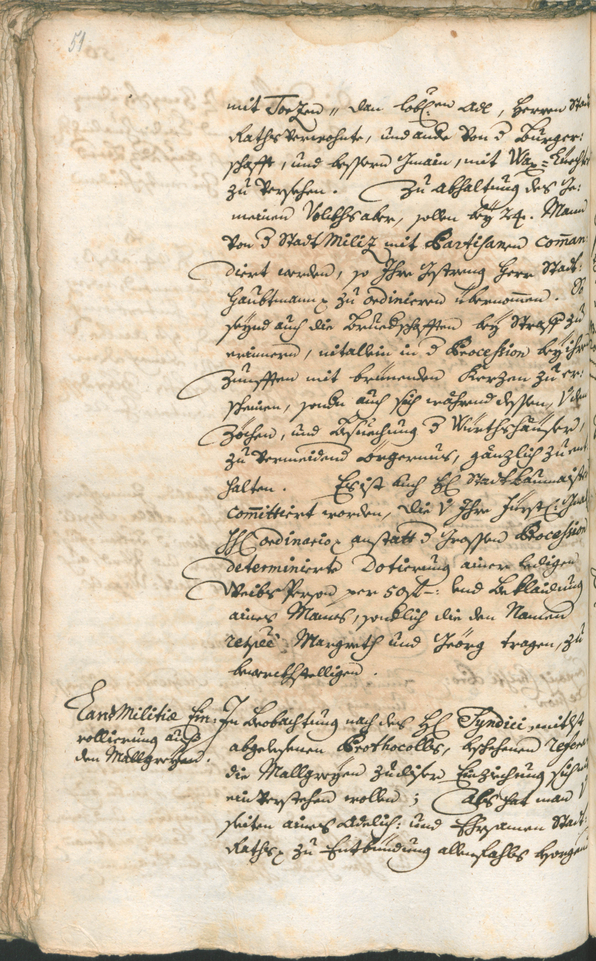 51
mit Torzen, dan löbl:en Adl, Herren Stad
Raths Verwohnte, und ande von d Burger:
schafft, und bessern Gmain, mit Wax=
zu versehen. Zu abhaltung des Ge:
meinen Volkhs aber, sollen bey 24. Mann
von d Stadt Miliz mit Partisanen coman
diert werden, so Ihre Gstreng Herr Stadt:
Haubtmann zu ordinieren übernommen. So
seynd auch die Bruedschafften bey Straff zu
erinnern, nit allein in d Procession bey ihr
Zunfften mit brünenden Kerzen zu er:
scheinen, sondn auch sich während dessen, V den
Zöchen, und Besuechung d Würthshäuser,
zu vermeidend Örgernus, gänzlich zu ent
halten. Es ist auch H: Stadt Baumaister
committiert worden, die V Ihro Fürstl: Gnad
Ordinario anstatt d grossen Procession
determinierte Dotierung ainer ledigen
Weibs Persohn per 50 f: und Beklaidung
aines Manns, so die den Namen
respee Margreth und Geörg tragen, zu
bewerckhstelligen.
Land Militiæ En:
rollierung auch
den Mallgreyen.
In Beobachtung nach des H: Syndici mitlst
abgelesenen Prothocolls, beschehenen refer
die Mallgreyen zu diser Einziehung sich
ein verstehen wollen; Als hat man V
seiten aines Adelich: und Ehrsamen Stadt:
Raths zu Entbündung allenfahls